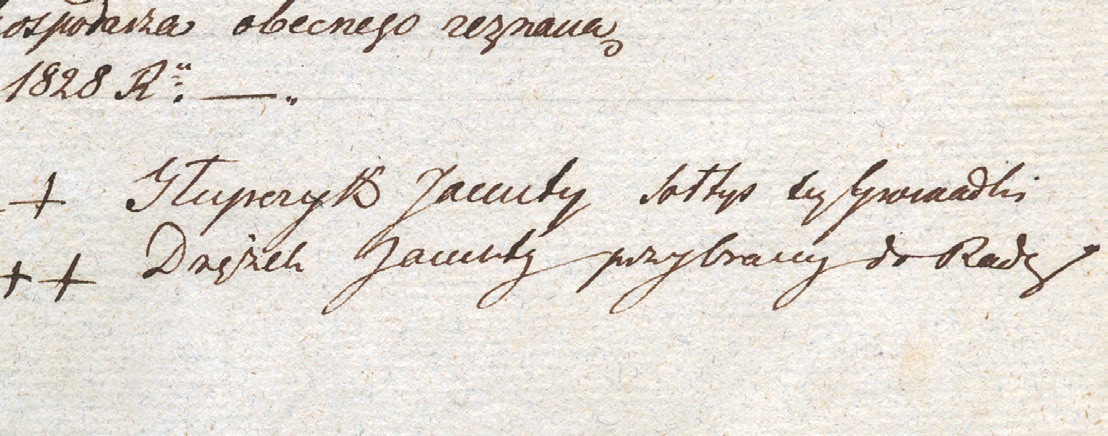 gospodarza obecnego zeznana
1828 R: —
+ Słupczyk Jacenty sołtys tey Gromadki
++ Drążek Jacenty przybrany do Rady